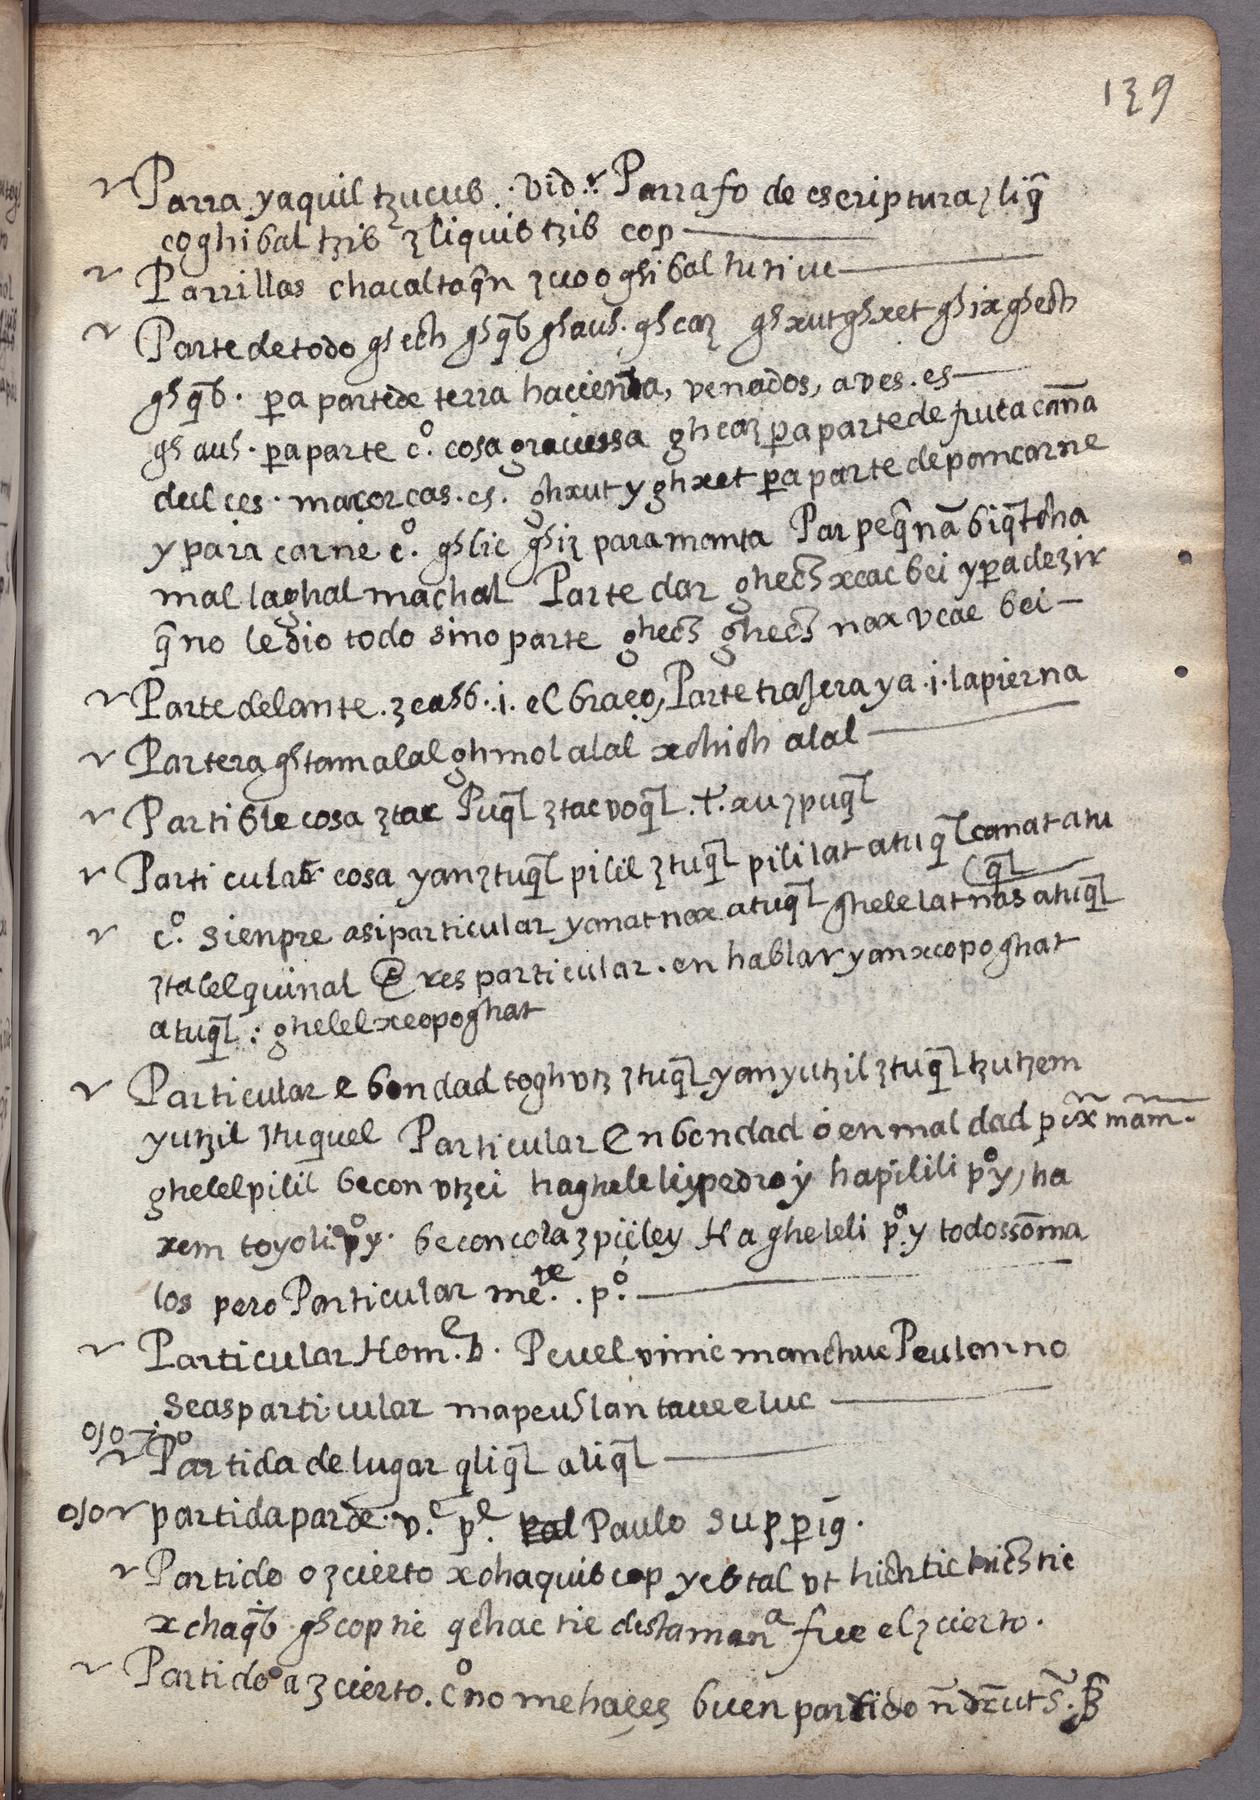 139
Parra yaquil tzucub. vid. Parrafo de escriptura ʒliq̃
coghibal tzib ʒliquib tzib cop
Parrillas chacaltaq̃n ʒuooghibal tutiue
Parte de todo ghech ghq̃b ghauh. ghcaʒ ghxut ghxet ghix ghech
ghq̃b. p̱a parte de terra hacienda, venados, aves. es
ghauh. p̱a parte c̊. cosa graciessa ghcaʒ p̱a parte de fruta cam̃a
dulces. macorcas. es. ghxut y ghxet p̱a parte de pan carne
y para carne c̊. ghlic ghiʒ para manta Par peq̃nã biq̃tcha
mal laghal machal Parte dar ghech xcac bei y p̱a deʒir
q̃ no le dio todo sino parte ghech ghech nax vcae bei
Parte delante. ʒeahb. i. el braço, Parte trasera ya. i. la pierna
Partera ghtam alal ghmol alal xchich alal
Partible cosa ʒtac Puq̃l ʒtac voq̃l. t. xuʒpuq̃l
Particular cosa yanʒtuq̃l pilil ʒtuq̃l pililat atuq̃l canat atu
q̃l
c̊. sienpre asi particular yanat nax atuq̃l ghelelat nas atuq̃l
ʒtalel quinal Eres particular. en hablar yanxcopoghat
atuq̃l: ghelelxcopoghat
Particular e bondad togh vtz ʒtuq̃l yanyutzil ʒtuq̃l tzutzem
yutzil ʒtuquel Particular En bondad ó en maldad
ghelelpilil becon vtzei haghele leypedroy hapilili p̊y, ha
xem toyoli p̊y. beconcolaʒpijley Hagheleli p̊.y todos sõ ma
los pero Particular me.te. p̊.
Particular Hom.e b. Peuel vinic manchuc Peulan no
seas particular mapeuhlan taueeluc
Partida de lugar q̃liq̃l aliq̃l
partida parde. v.e p.e Paulo sup p̱ig̃.
Partido oʒcierto xchaquib cop yebtal vt hichtic hichtic
xchaq̃b ghcop tic qchac tic desta man.a fue elʒcierto.
Partido aʒcierto. c̊ no me haçeʒ buen partido